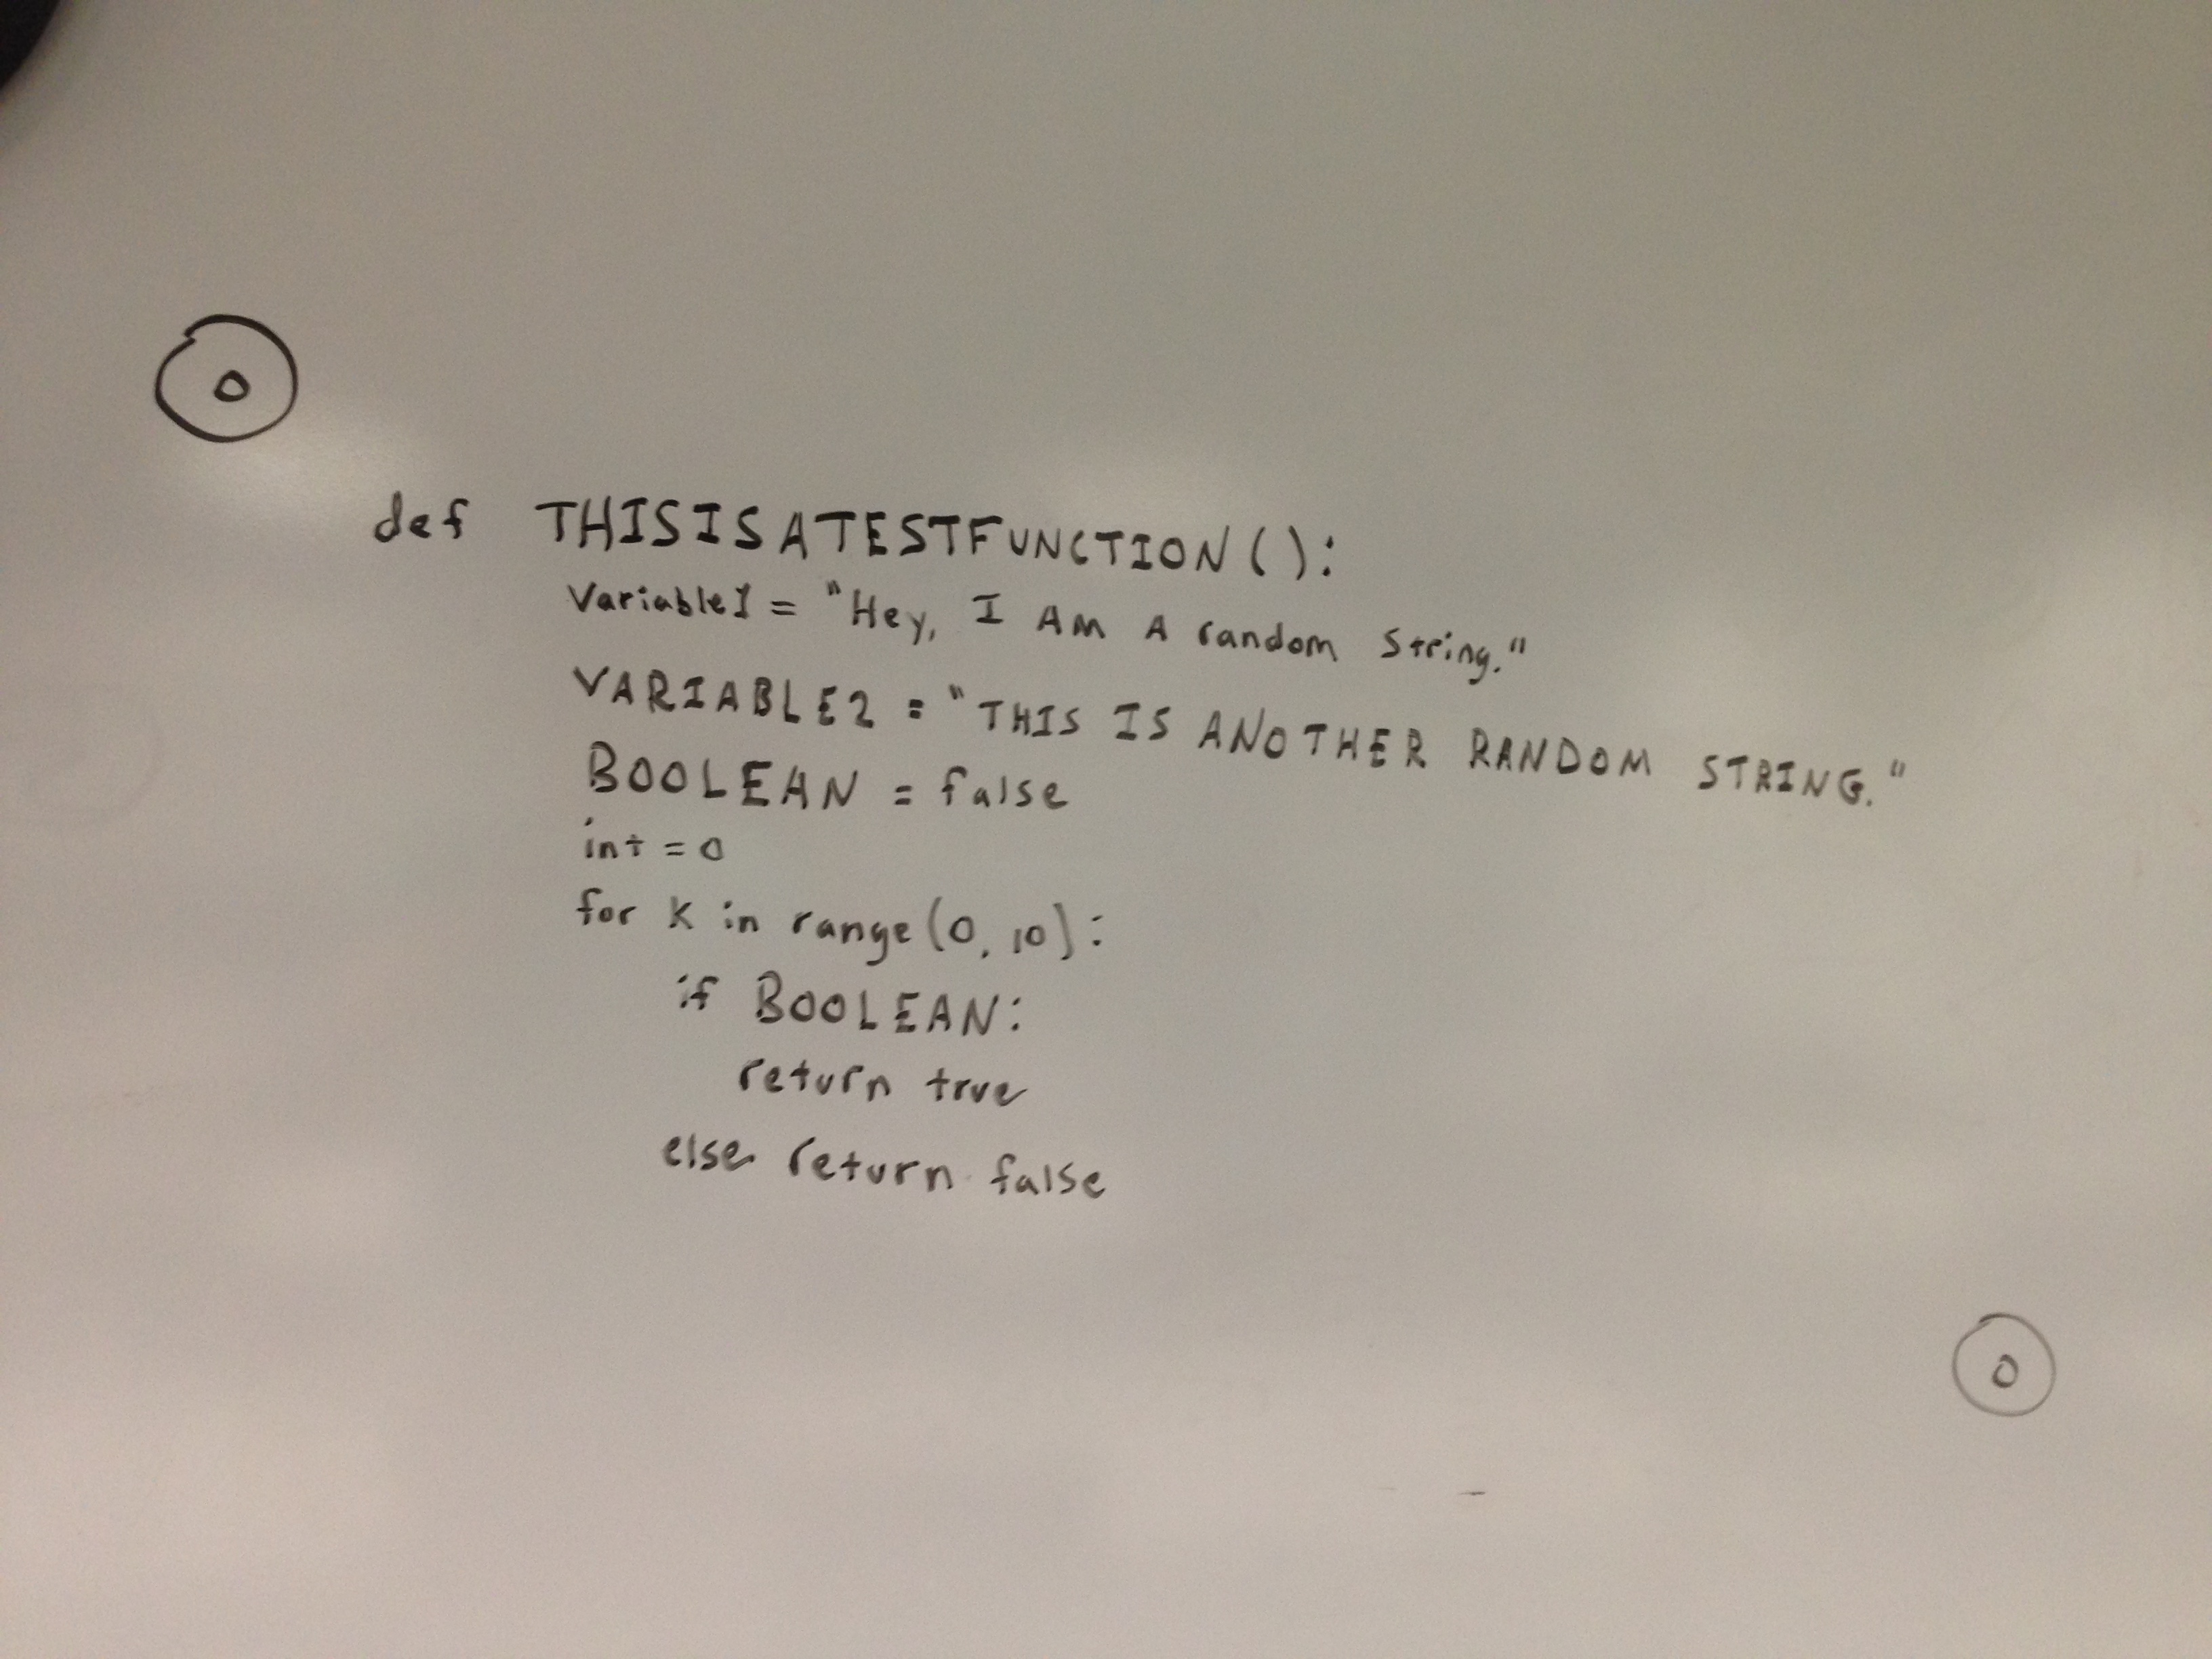 0
def THISISATESTFUNCTION():
Variable1 = "Hey, I AM A random String."
VARIABLE2 = "THIS IS ANOTHER RANDOM STRING."
BOOLEAN = false
int = 0
for k in range(0, 10):
if BOOLEAN:
return true
else return false
0